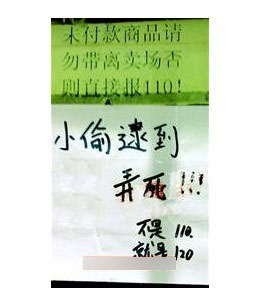 未付款商品请
勿带离卖场否
则直接报110!
小偷逮到
弄死!!!
不是 110.
就是 120